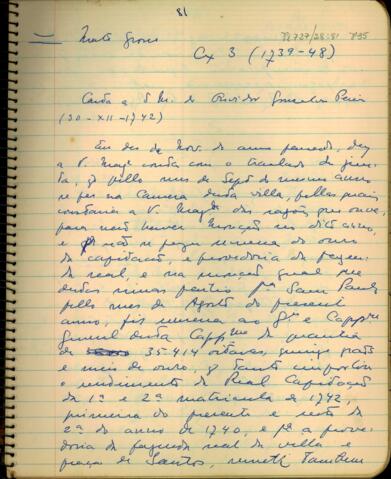 81
Mato Grosso
Cx 3 (1739-48)
Carta a S. M. do Ouvidor Gonçalves Pereira
(30-XII-1742)
Em dez de Nov. do anno passado, dey
a V. Mag.e conta com o traslado da junta
q pello mes de Sept.o do mesmo anno
se fez na Camera desta villa, pellas quais
constava a V. Mag.de das razões que ouve
para não haver monção no dito anno,
e q não se fazer remessa do ouro
da capitação, e provedoria da fazenda
real, e na monção geral que
destas minas partio p.a Sam Paulo
pello mes de Agosto do presente
anno, fiz remessa ao G.or e Capp.am
general desta Capp.nia da quantia
de 35.414 oitavas, quinze grãos
e meio de ouro, q tanto importou
o rendimento da Real Capitação
da 1ª e 2ª matricula de 1742,
primeira do presente e resto da
2ª do anno de 1740, e p.a a provedoria
da fazenda real da villa e
praça de Santos, remeti tambem